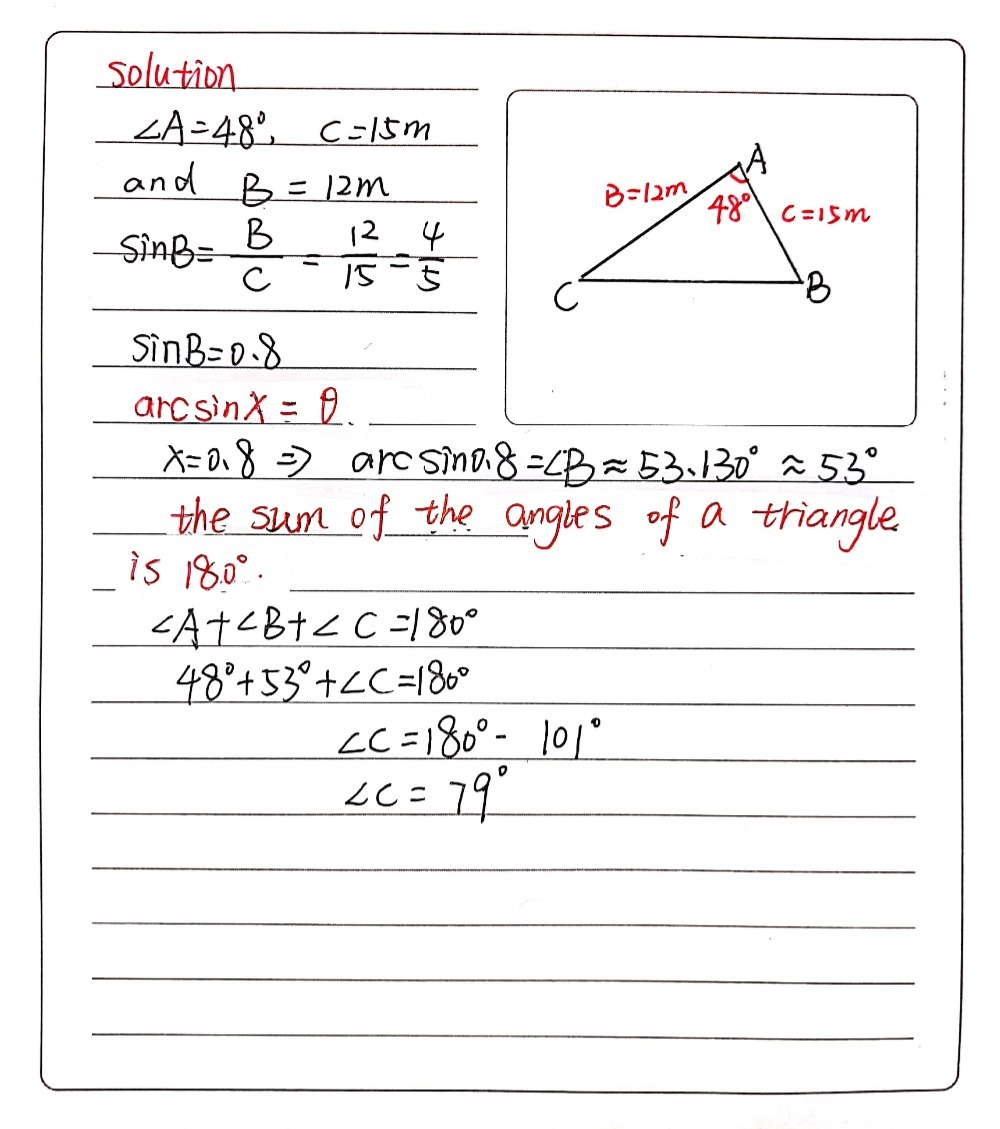 solution
∠A=48°, C=15m
and B = 12m
sinB= B/C = 12/15 = 4/5
sinB=0.8
arcsinX = θ.
X=0.8 ⇒ arcsin0.8=∠B≈53.130° ≈53°
the sum of the angles of a triangle
is 180°.
∠A+∠B+∠C=180°
48°+53°+∠C=180°
∠C=180°- 101°
∠C= 79°
A
B=12m
48°
C=15m
C
B